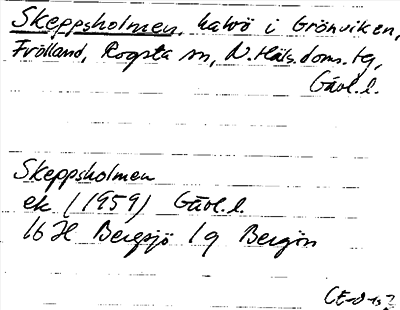 Skeppsholmen, halvö i Grönviken,
Frölland, Rogsta sn, N. Häls. doms. tg,
Gävl. l.
Skeppsholmen
ek (1959) Gävl. l.
16 H Bergsjö 1g Bergön